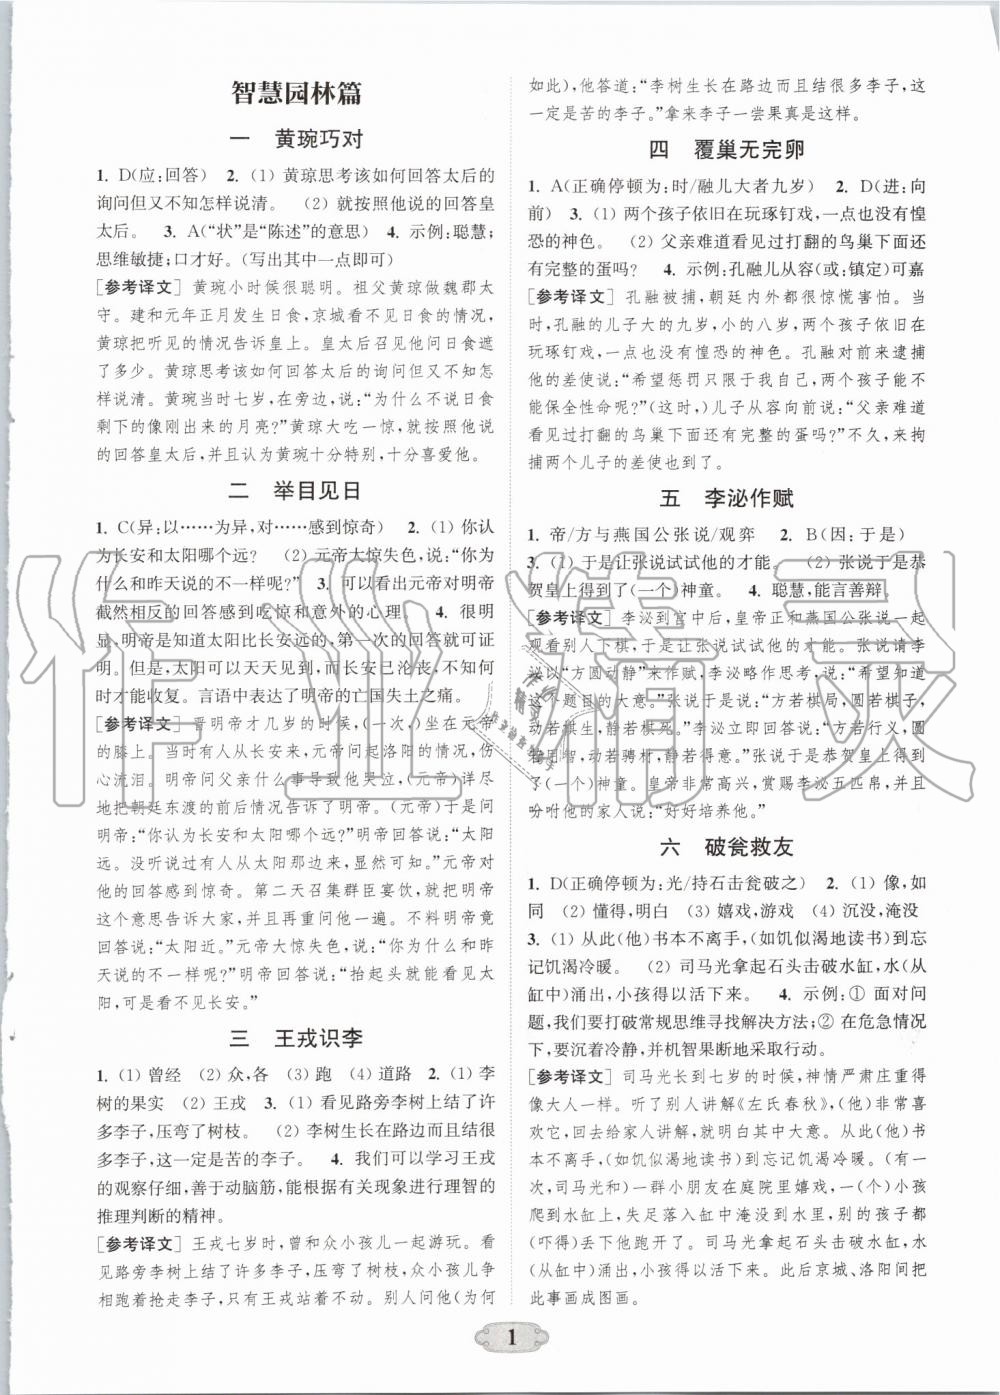 智慧园林篇
一　黄琬巧对
1. D(应:回答)　2. (1) 黄琼思考该如何回答太后的
询问但又不知怎样说清。　(2) 就按照他说的回答皇
太后。　3. A(“状”是“陈述”的意思)　4. 示例:聪慧;
思维敏捷;口才好。(写出其中一点即可)
[参考译文] 黄琬小时候很聪明。祖父黄琼做魏郡太
守。建和元年正月发生日食,京城看不到日食的情况,
黄琼把听见的情况告诉皇上。皇太后召他问日食遮
了多少。黄琼思考该如何回答太后的询问但又不知怎
样说清。黄琬当时七岁,在旁边,说:“为什么不说日食
剩下的像刚出来的月亮?”黄琼大吃一惊,就按照他说
的回答皇太后,并且认为黄琬十分特别,十分喜爱他。
二　举目见日
1. C(异:以……为异,对……感到惊奇)　2. (1) 你认
为长安和太阳哪个远?　(2) 元帝大惊失色,说:“你为
什么和昨天说的不一样呢?”　3. 可以看出元帝对明帝
截然相反的回答感到吃惊和意外的心理。　4. 很明
显,明帝是知道太阳比长安远的,第一次的回答就可证
明。但是,太阳可以天天见到,而长安已沦丧,不知何
时才能收复。言语中表达了明帝的亡国失土之痛。
[参考译文] 晋明帝才几岁的时候,(一次,)坐在元帝
的膝上。当时有人从长安来,元帝问起洛阳的情况,伤
心流泪。明帝问什么事导致他哭泣,(元帝)详尽
地把朝廷东渡的前后情况告诉了明帝。(元帝)于是问
明帝:“你认为长安和太阳哪个远?”明帝回答说:“太阳
远。没听说过有人从太阳那边来,显然可知。”元帝对
他的回答感到惊奇。第二天召集群臣宴饮,就把明帝
这个意思告诉大家,并且再重问他一遍。不料明帝竟
回答说:“太阳近。”元帝大惊失色,说:“你为什么和昨
天说的不一样呢?”明帝回答说:“抬起头就能看见太
阳,可是看不见长安。”
三　王戎识李
1. (1) 曾经　(2) 众,各　(3) 跑　(4) 道路　2. (1) 李
树的果实　(2) 王戎　3. (1) 看见路旁李树上结了许
多李子,压弯了树枝。　(2) 李树生长在路边而且结很
多李子,这一定是苦的李子。　4. 我们可以学习王戎
的观察仔细,善于动脑筋,能根据有关现象进行理智的
推理判断的精神。
[参考译文] 王戎七岁时,曾和众小孩儿一起游玩。看
见路旁李树上结了许多李子,压弯了树枝,众小孩儿争
相跑着抢走李子,只有王戎站着不动。别人问他(为何
如此),他答道:“李树生长在路边而且结很多李子,这
一定是苦的李子。”拿来李子一尝果真是这样。
四　覆巢无完卵
1. A(正确停顿为:时/融儿大者九岁)　2. D(进:向
前)　3. (1) 两个孩子依旧在玩琢钉戏,一点也没有惶
恐的神色。　(2) 父亲难道看见过打翻的鸟巢下面还
有完整的蛋吗?　4. 示例:孔融儿从容(或:镇定)可嘉
[参考译文] 孔融被捕,朝廷内外都很惊慌害怕。当
时,孔融的儿子大的九岁,小的八岁,两个孩子依旧在
玩琢钉戏,一点也没有惶恐的神色。孔融对前来逮捕
他的差使说:“希望惩罚只限于我自己,两个孩子能不
能保全性命呢?”(这时,)儿子从容向前说:“父亲难道
看见过打翻的鸟巢下面还有完整的蛋吗?”不久,来拘
捕两个儿子的差使也到了。
五　李泌作赋
1. 帝/方与燕国公张说/观弈　2. B(因:于是)
3. (1) 于是让张说试试他的才能。　(2) 张说于是恭
贺皇上得到了(一个)神童。　4. 聪慧,能言善辩
[参考译文] 李泌到宫中后,皇帝正和燕国公张说一起
观看别人下棋,于是让张说试试他的才能。张说请李
泌以“方圆动静”来作赋,李泌略作思考,说:“希望知道
这个题目的大意。”张说于是说:“方若棋局,圆若棋子,
动若棋生,静若棋死。”李泌立即回答说:“方若行义,圆
若用智,动若骋材,静若得意。”张说于是恭贺皇上得到
了(一个)神童。皇帝非常高兴,赏赐李泌五匹帛,并且
吩咐他的家人说:“好好培养他。”
六　破瓮救友
1. D(正确停顿为:光/持石击瓮破之)　2. (1) 像,如
同　(2) 懂得,明白　(3) 嬉戏,游戏　(4) 沉没,淹没
3. (1) 从此(他)书本不离手,(如饥似渴地读书)到忘
记饥渴冷暖。　(2) 司马光拿起石头击破水缸,水(从
缸中)涌出,小孩得以活下来。　4. 示例:① 面对问
题,我们要打破常规思维寻找解决方法;② 在危急情况
下,要沉着冷静,并机智果断地采取行动。
[参考译文] 司马光长到七岁的时候,神情严肃庄重得
像大人一样。听了别人讲解《左氏春秋》,(他)非常喜
欢它,回去给家人讲解,就明白其中大意。从此(他)书
本不离手,(如饥似渴地读书)到忘记饥渴冷暖。(有一
次,司马光和)一群小朋友在庭院里嬉戏,一(个)小孩
爬到水缸上,失足落入缸中淹没在水里,别的孩子都
(吓得)丢下他跑开了。司马光拿起石头击破水缸,水
(从缸中)涌出,小孩得以活下来。此后京城、洛阳间把
此事画成图画。
1
作业精灵